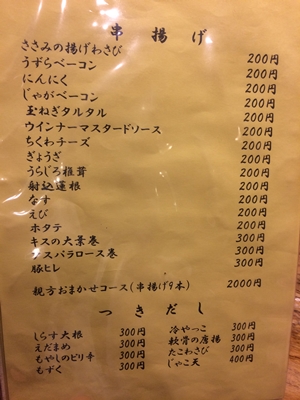 串揚げ
ささみの揚げわさび 200円
うずらベーコン 200円
にんにく 200円
じゃがベーコン 200円
玉ねぎタルタル 200円
ウインナーマスタードソース 200円
ちくわチーズ 200円
ぎょうざ 200円
うらじろ椎茸 200円
射込蓮根 200円
なす 200円
えび 200円
ホタテ 200円
キスの大葉巻 300円
アスパラロース巻 300円
豚ヒレ 300円
親方おまかせコース(串揚げ9本) 2000円
つきだし
しらす大根 300円 冷やっこ 300円
えだまめ 300円 軟骨の唐揚 300円
もやしのピリ辛 300円 たこわさび 300円
もずく 300円 じゃこ天 400円